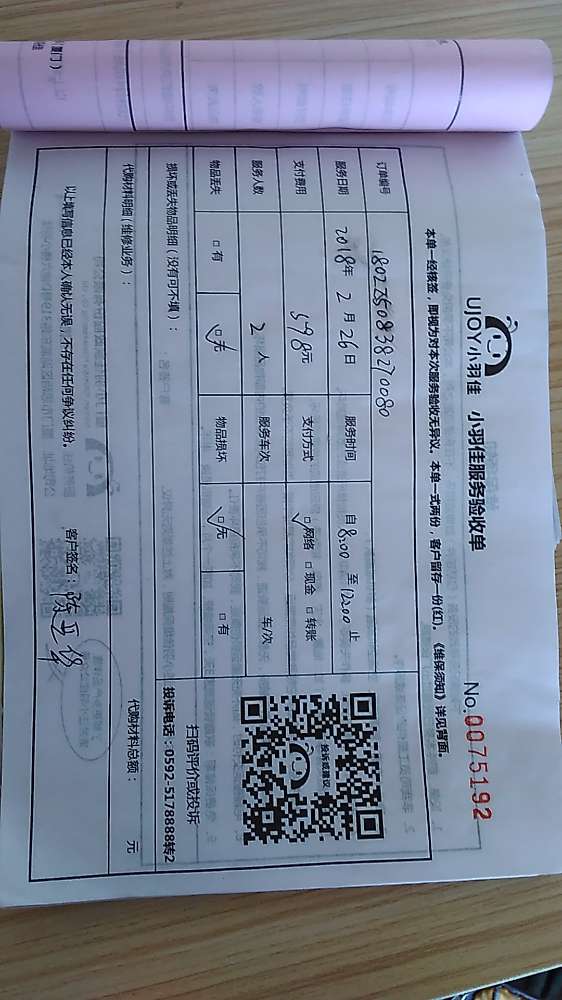 UJOY小羽佳 小羽佳服务验收单 No.0075192
本单一经核签，即视为对本次服务验收无异议。本单一式两份，客户留存一份(红)。《维保须知》详见背面。
订单编号 1802250838270080
服务日期 2018年 2月 26日 服务时间 自 8:00 至 12:00 止
支付费用 598元 支付方式 □网络 □现金 □转账
服务人数 2人 服务车次 车/次
物品丢失 □有 □无 物品损坏 □无 □有
投诉或建议
扫码评价或投诉
投诉电话：0592-5178888转2
损坏或丢失物品明细（没有可不填）：
代购材料明细（维修业务）： 代购材料总额： 元
以上填写信息已经本人确认无误，不存在任何争议纠纷。 客户签名：